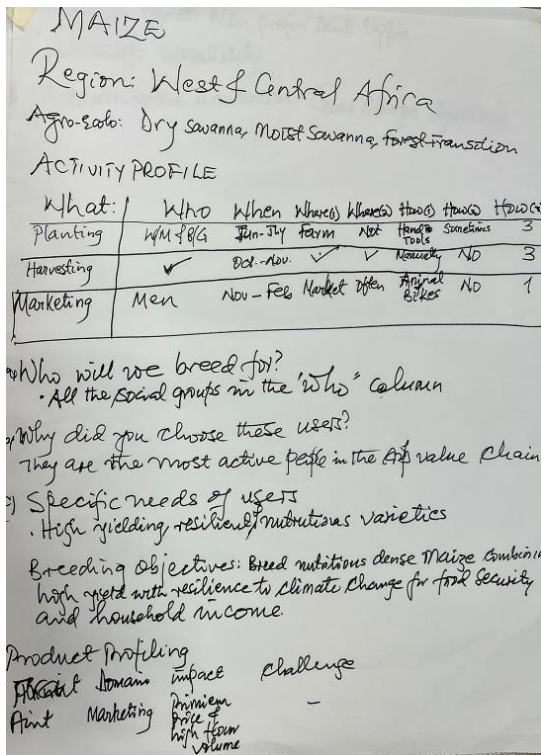 MAIZE
Region: West & Central Africa
Agro-ecolo: Dry savanna, Moist Savanna, Forest-Transition
ACTIVITY PROFILE
What: Who When Where(1) Where(2) How(1) How(2) How(3)
Planting W/M & B/G Jun-Jly Farm Not Hand Tools Sometimes 3
Harvesting ✓ Oct.-Nov. ✓ ✓ Manually NO 3
Marketing Men Nov-Feb Market Often Animal Bikes No 1
Who will we breed for?
· All the social groups in the "Who" column
Why did you choose these users?
They are the most active people in the value chain
c) Specific needs of users
· High yielding, resilient, nutritious varieties
Breeding objectives: Breed nutritious dense Maize combin
high yield with resilience to climate change for food security
and household income.
Product Profiling
Domain impact challenge
Marketing Primium price & high flour volume –